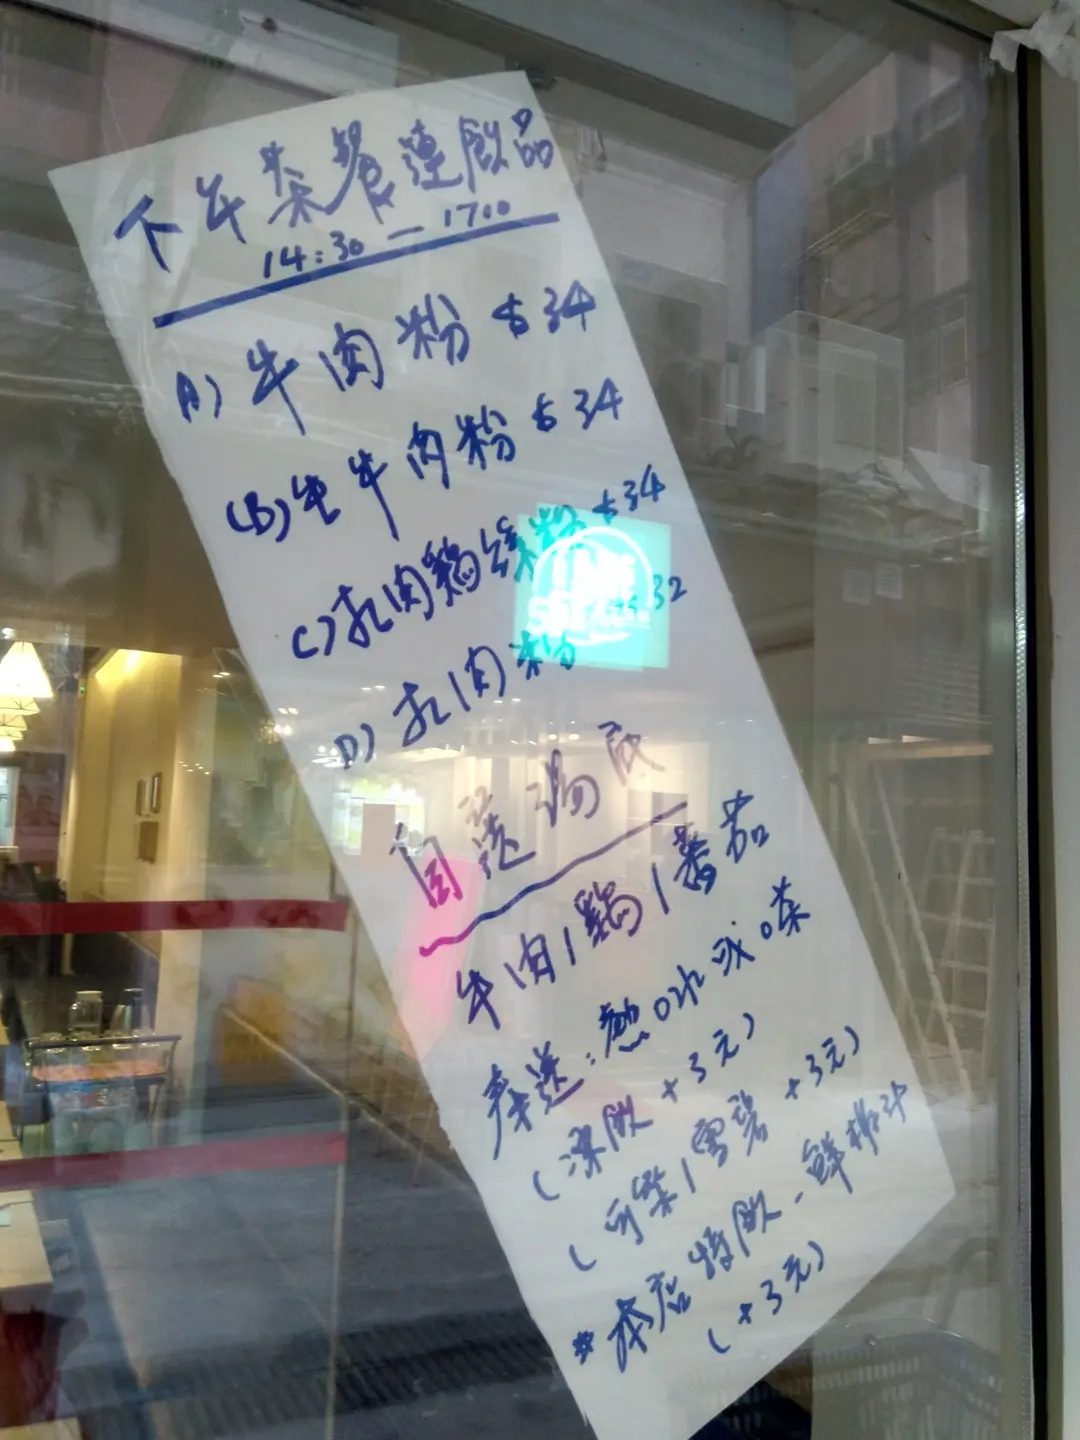 下午茶餐連飲品
14:30 — 17:00
A) 牛肉粉 $34
(B) 生牛肉粉 $34
C) 扎肉鷄絲粉 $34
D) 扎肉粉 $32
自選湯底
牛肉 / 鷄 / 蕃茄
奉送: 熱
(凍飲 +3元)
(可樂 / 雪碧 +3元)
* 本店特飲 - 鮮
(+3元)